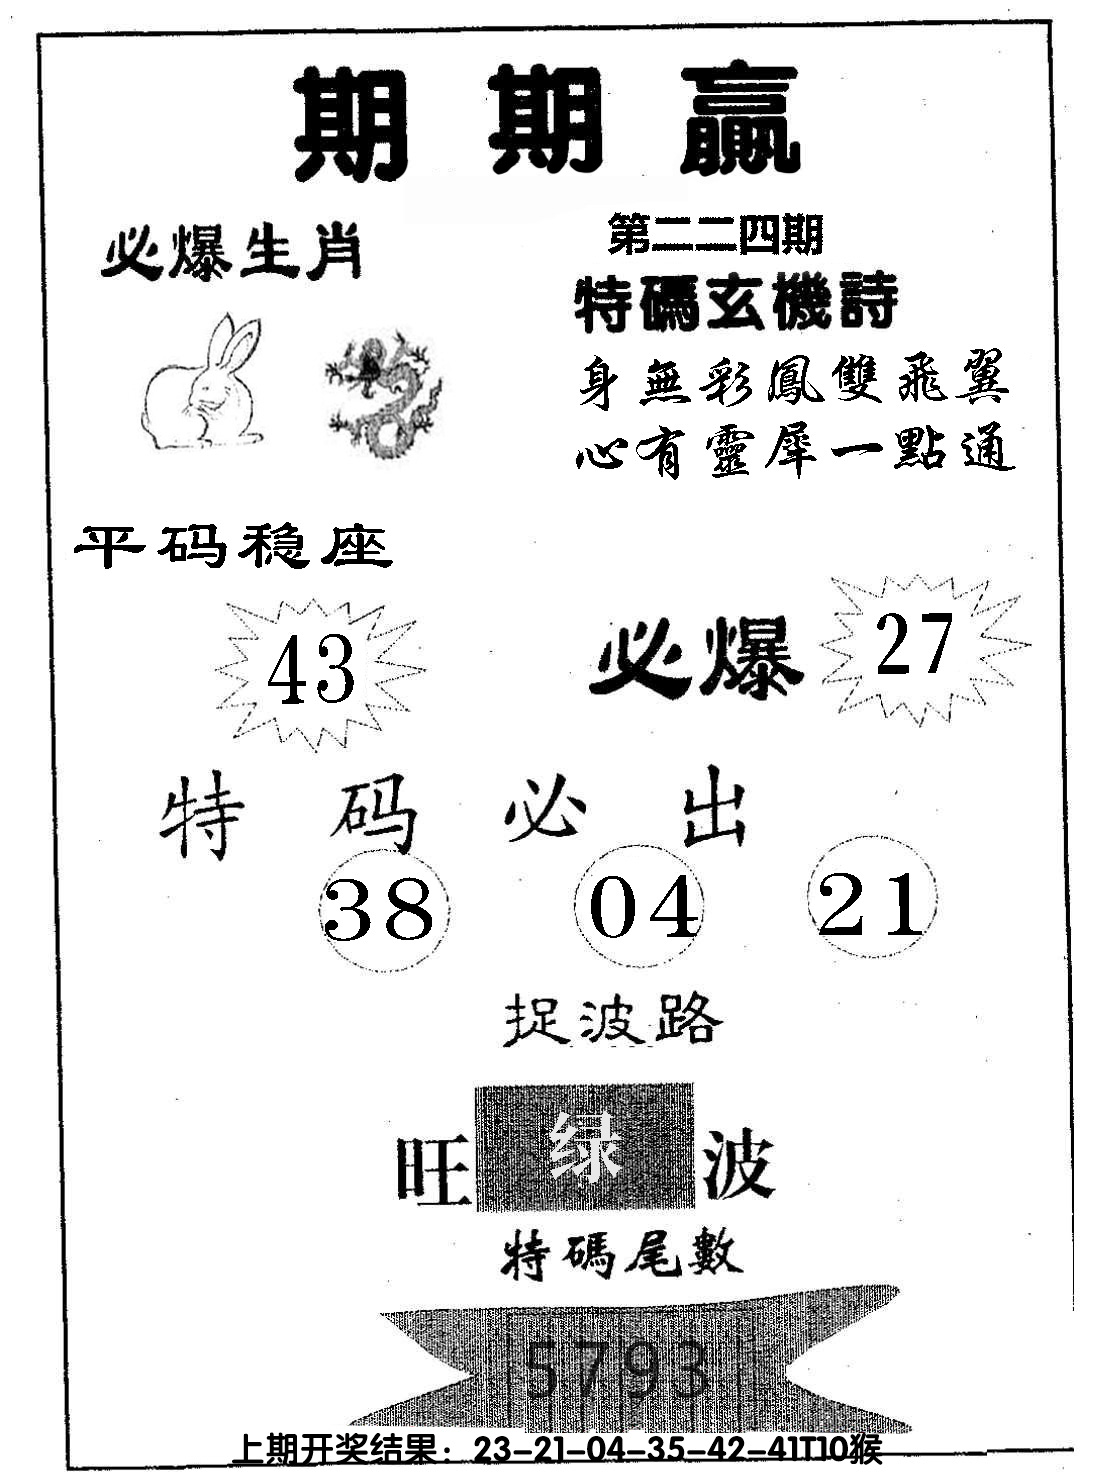 期期贏
必爆生肖
第二二四期
特碼玄機詩
身無彩鳳雙飛翼
心有靈犀一點通
平码稳座
43
必爆
27
特码必出
38 04 21
捉波路
旺 绿 波
特碼尾數
5793
上期开奖结果：23-21-04-35-42-41T10猴